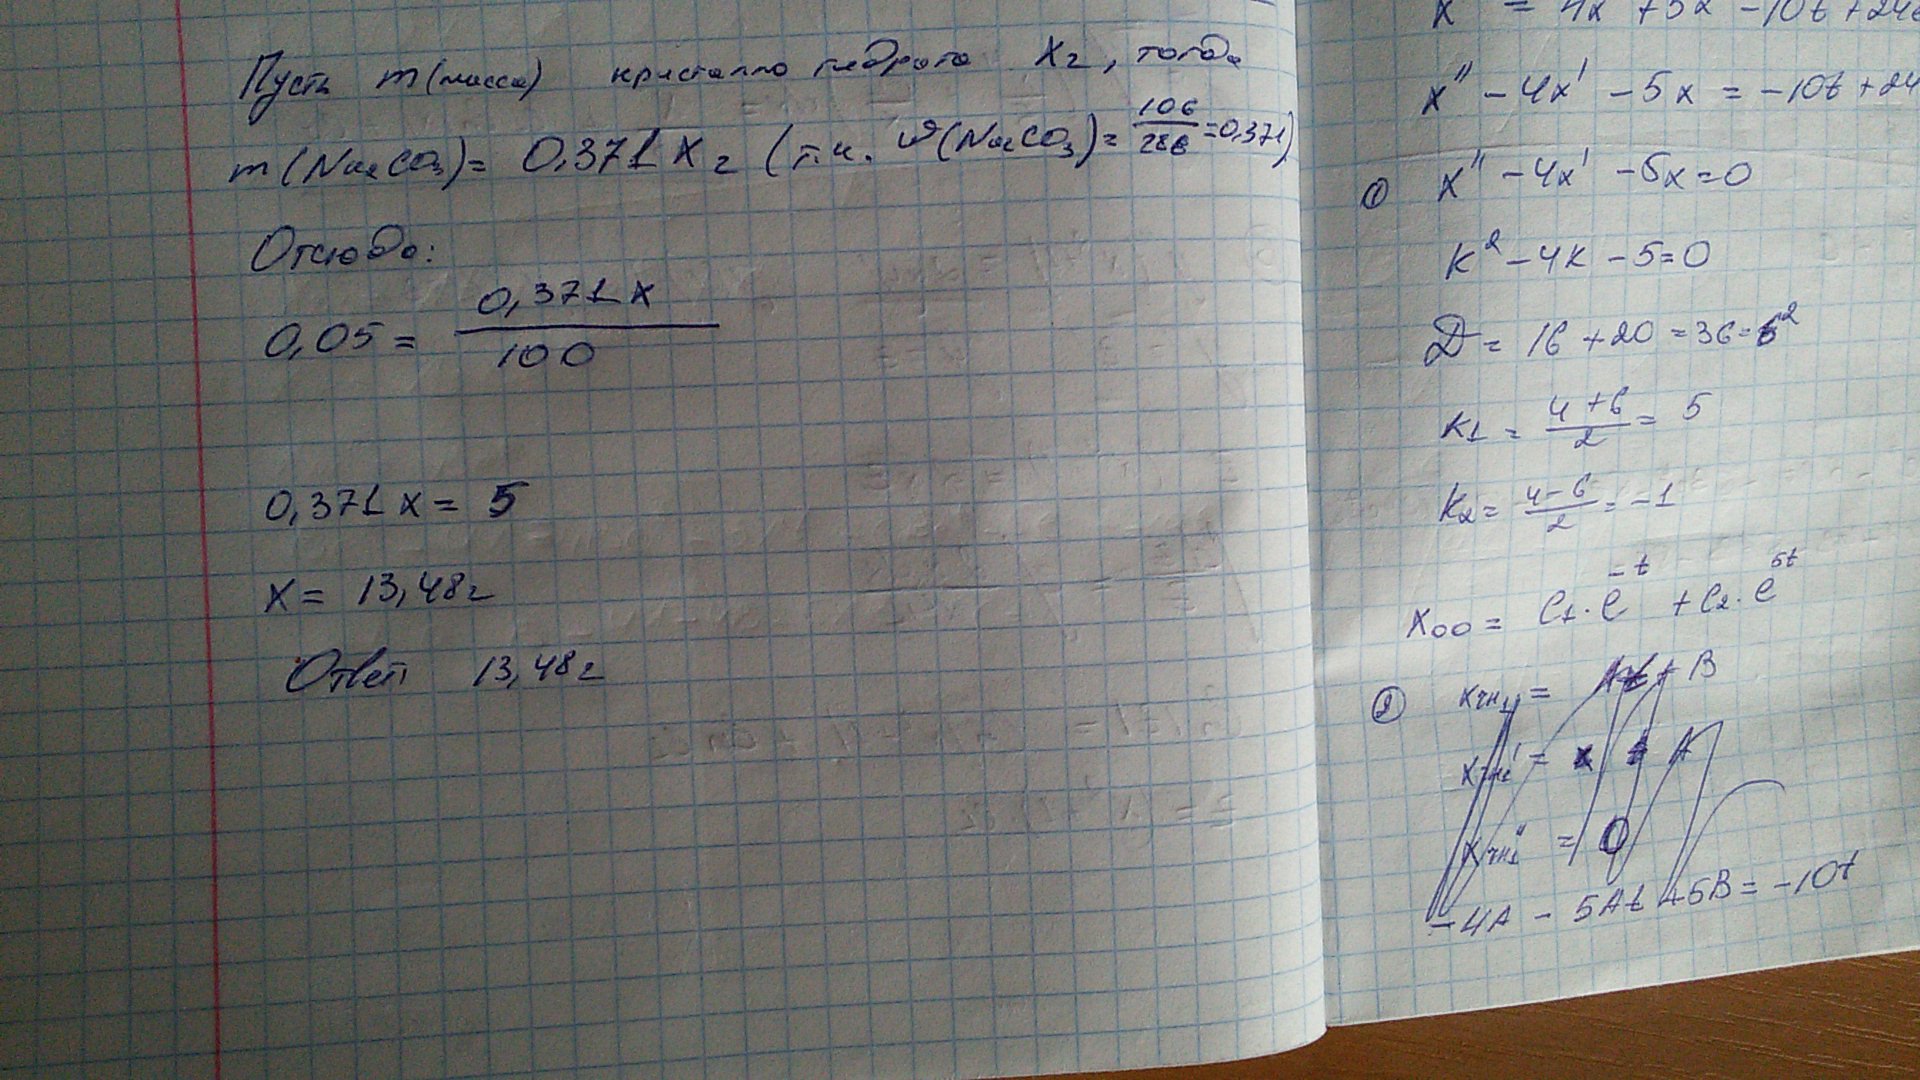 Пусть m(масса) кристаллогидрата X г, тогда
m(Na₂CO₃) = 0,371 X г (т.к. ω(Na₂CO₃) = 106/286 = 0,371)
Отсюда:
0,05 = 0,371 x / 100
0,371 x = 5
x = 13,48 г
Ответ 13,48 г
x'' - 4x' - 5x = -10t + 24
① x'' - 4x' - 5x = 0
k² - 4k - 5 = 0
D = 16 + 20 = 36 = 6²
k₁ = (4 + 6)/2 = 5
k₂ = (4 - 6)/2 = -1
x₀₀ = C₁·e^(-t) + C₂·e^(5t)
② xчн₁ = At + B
xчн₁'' = 0
-4A - 5At + 5B = -10t